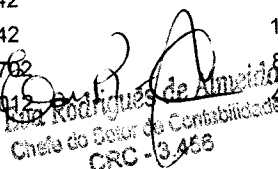 42
42
702
012
1
Rodrigues de Almeida
Chefe do Setor de Contabilidade
CRC - 3.466